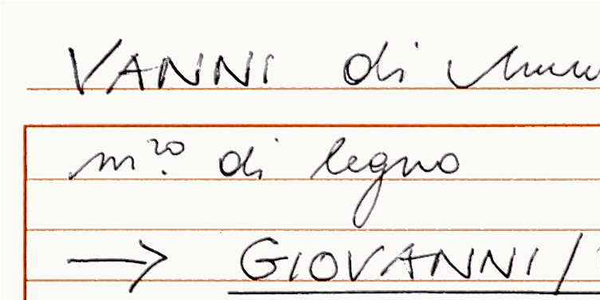 VANNI di
m.ro di legno
→ GIOVANNI/